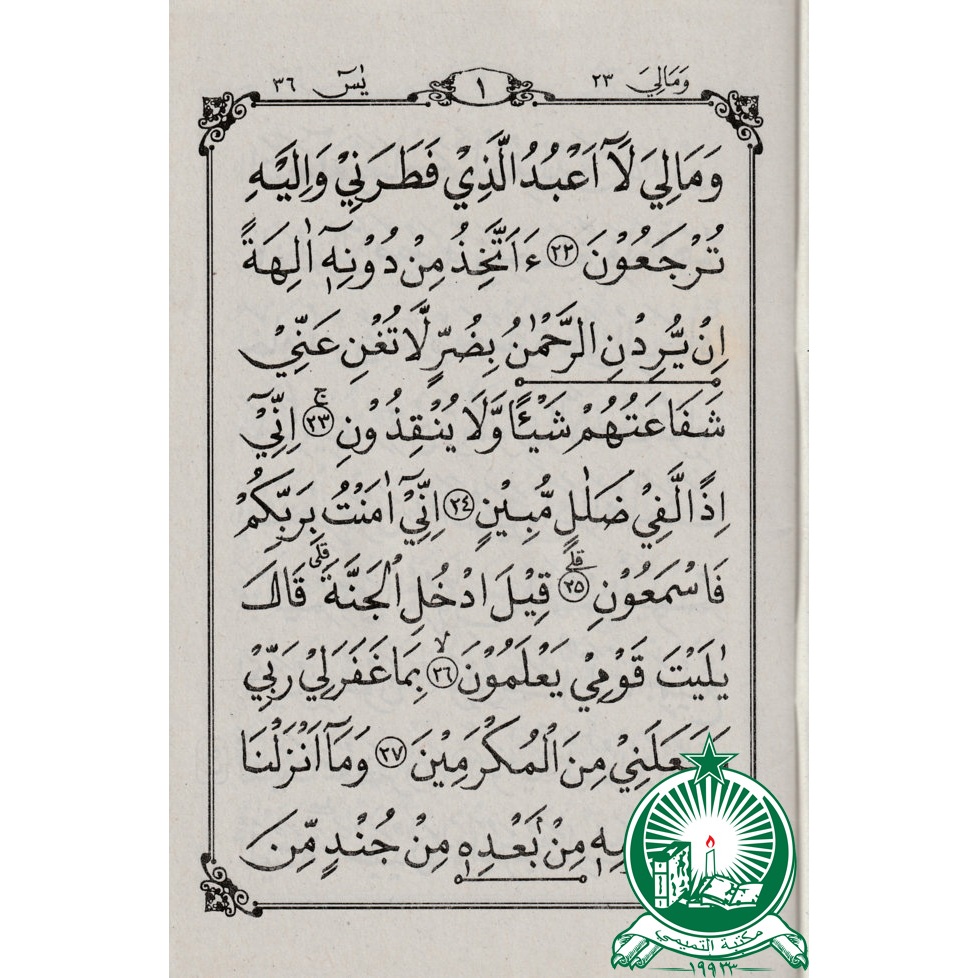 وَمَالِيَ ٢٣
١
يٰسٓ ٣٦
وَمَالِيَ لَآ اَعْبُدُ الَّذِيْ فَطَرَنِيْ وَاِلَيْهِ
تُرْجَعُوْنَ ٢٢ ءَاَتَّخِذُ مِنْ دُوْنِهٖٓ اٰلِهَةً
اِنْ يُّرِدْنِ الرَّحْمٰنُ بِضُرٍّ لَّا تُغْنِ عَنِّيْ
شَفَاعَتُهُمْ شَيْـًٔا وَّلَا يُنْقِذُوْنِ ۚ ٢٣ اِنِّيْٓ
اِذًا لَّفِيْ ضَلٰلٍ مُّبِيْنٍ ٢٤ اِنِّيْٓ اٰمَنْتُ بِرَبِّكُمْ
فَاسْمَعُوْنِ ۗ ٢٥ قِيْلَ ادْخُلِ الْجَنَّةَ ۗ قَالَ
يٰلَيْتَ قَوْمِيْ يَعْلَمُوْنَ ۙ ٢٦ بِمَا غَفَرَ لِيْ رَبِّيْ
وَجَعَلَنِيْ مِنَ الْمُكْرَمِيْنَ ٢٧ وَمَآ اَنْزَلْنَا
مِنْۢ بَعْدِهٖ مِنْ جُنْدٍ مِّنَ
مكتبة التميمي
١٩٩٣٣